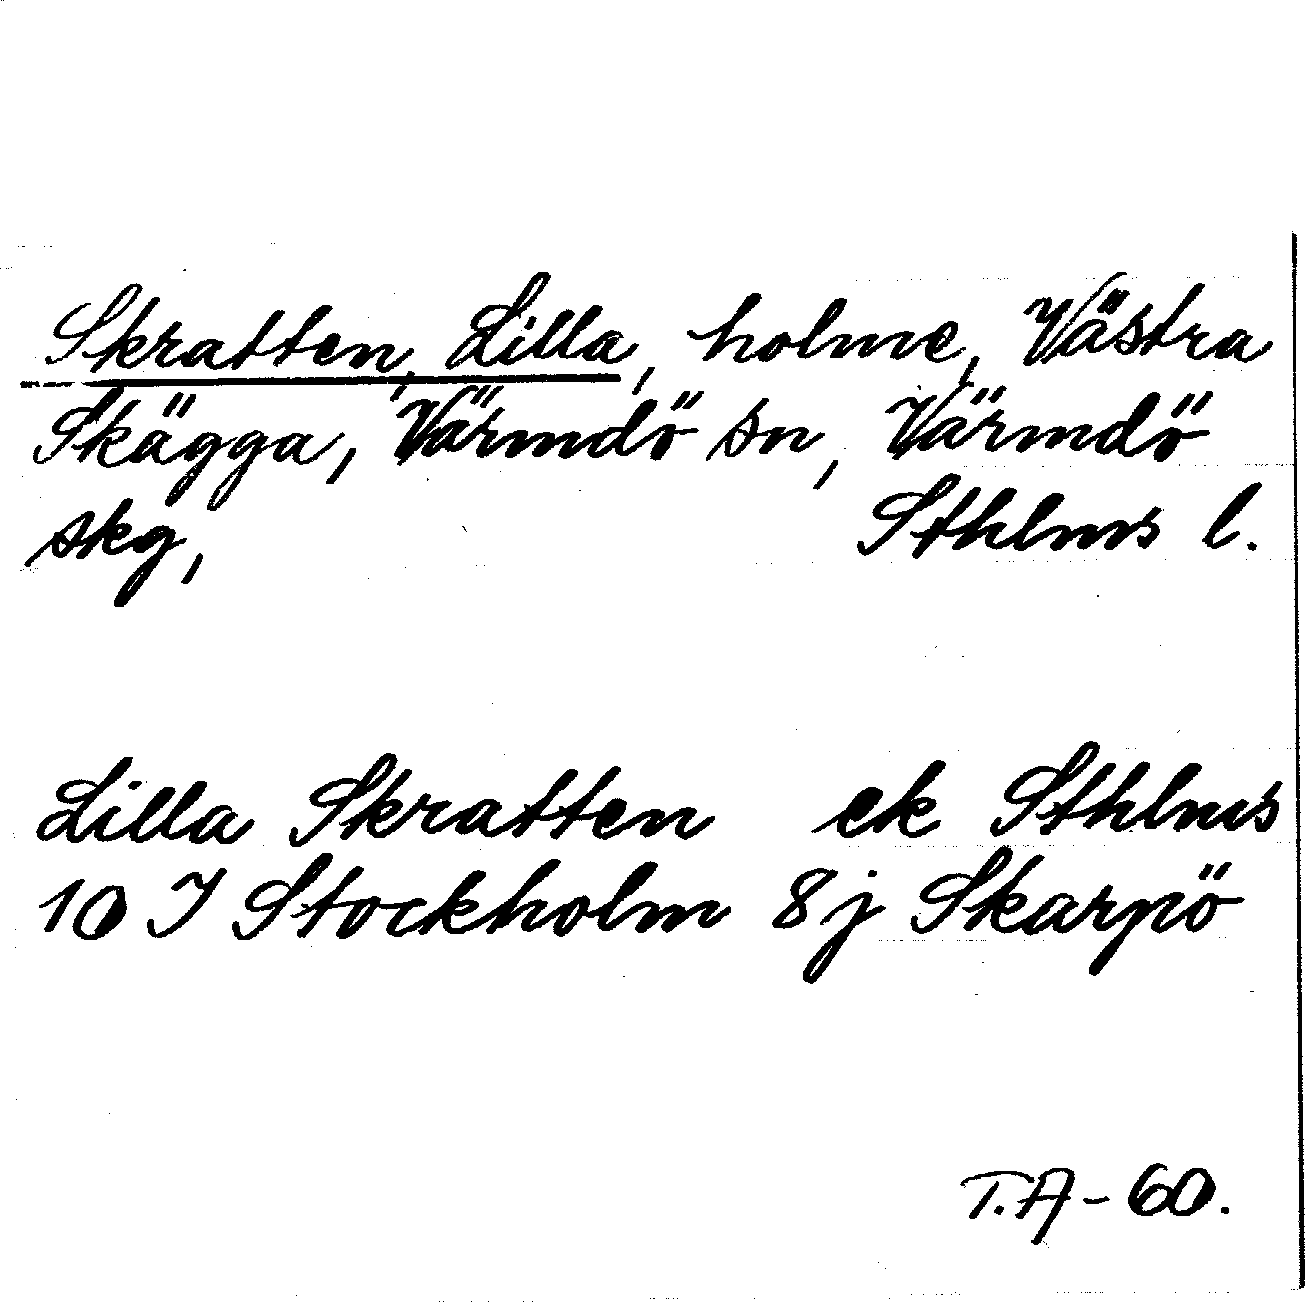 Skratten, Lilla, holme, Västra
Skägga, Värmdö sn, Värmdö
skg, Sthlms l.
Lilla Skratten ek Sthlms
10 I Stockholm 8j Skarpö
T.A-60.